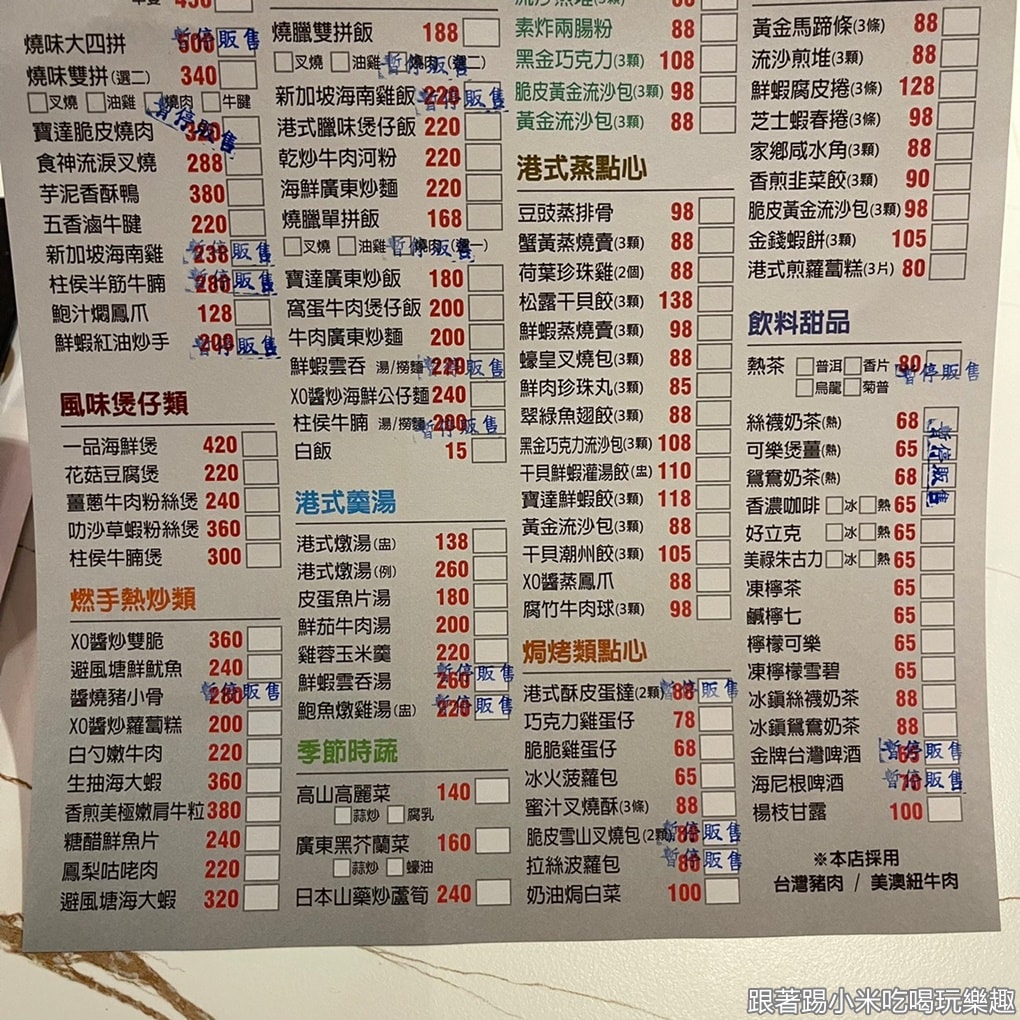 燒味大四拼 500 暫停販售
燒味雙拼(選二) 340
叉燒 油雞 燒肉 牛腱
寶達脆皮燒肉 暫停販售
食神流淚叉燒 288
芋泥香酥鴨 380
五香滷牛腱 220
新加坡海南雞 238 暫停販售
柱侯半筋牛腩 280 暫停販售
鮑汁燜鳳爪 128
鮮蝦紅油炒手 200 暫停販售
風味煲仔類
一品海鮮煲 420
花菇豆腐煲 220
薑蔥牛肉粉絲煲 240
叻沙草蝦粉絲煲 360
柱侯牛腩煲 300
燃手熱炒類
XO醬炒雙脆 360
避風塘鮮魷魚 240
醬燒豬小骨 280 暫停販售
XO醬炒蘿蔔糕 200
白勺嫩牛肉 220
生抽海大蝦 360
香煎美極嫩肩牛粒 380
糖醋鮮魚片 240
鳳梨咕咾肉 220
避風塘海大蝦 320
燒臘雙拼飯 188
叉燒 油雞 燒肉(選二) 暫停販售
新加坡海南雞飯 220 暫停販售
港式臘味煲仔飯 220
乾炒牛肉河粉 220
海鮮廣東炒麵 220
燒臘單拼飯 168
叉燒 油雞 燒肉(選一) 暫停販售
寶達廣東炒飯 180
窩蛋牛肉煲仔飯 200
牛肉廣東炒麵 200
鮮蝦雲吞 湯/撈麵 220 暫停販售
XO醬炒海鮮公仔麵 240
柱侯牛腩 湯/撈麵 200 暫停販售
白飯 15
港式羹湯
港式燉湯(盅) 138
港式燉湯(例) 260
皮蛋魚片湯 180
鮮茄牛肉湯 200
雞蓉玉米羹 220
鮮蝦雲吞湯 260 暫停販售
鮑魚燉雞湯(盅) 220 暫停販售
季節時蔬
高山高麗菜 140
蒜炒 腐乳
廣東黑芥蘭菜 160
蒜炒 蠔油
日本山藥炒蘆筍 240
素炸兩腸粉 88
黑金巧克力(3顆) 108
脆皮黃金流沙包(3顆) 98
黃金流沙包(3顆) 88
港式蒸點心
豆豉蒸排骨 98
蟹黃蒸燒賣(3顆) 88
荷葉珍珠雞(2個) 88
松露干貝餃(3顆) 138
鮮蝦蒸燒賣(3顆) 98
蠔皇叉燒包(3顆) 88
鮮肉珍珠丸(3顆) 85
翠綠魚翅餃(3顆) 88
黑金巧克力流沙包(3顆) 108
干貝鮮蝦灌湯餃(盅) 110
寶達鮮蝦餃(3顆) 118
黃金流沙包(3顆) 88
干貝潮州餃(3顆) 105
XO醬蒸鳳爪 88
腐竹牛肉球(3顆) 98
焗烤類點心
港式酥皮蛋撻(2顆) 88 暫停販售
巧克力雞蛋仔 78
脆脆雞蛋仔 68
冰火菠蘿包 65
蜜汁叉燒酥(3條) 88
脆皮雪山叉燒包(2顆) 暫停販售
拉絲波蘿包 暫停販售
奶油焗白菜 100
黃金馬蹄條(3條) 88
流沙煎堆(3顆) 88
鮮蝦腐皮捲(3條) 128
芝士蝦春捲(3條) 98
家鄉咸水角(3顆) 88
香煎韭菜餃(3顆) 90
脆皮黃金流沙包(3顆) 98
金錢蝦餅(3顆) 105
港式煎蘿蔔糕(3片) 80
飲料甜品
熱茶 普洱 香片 80 暫停販售
烏龍 菊普
絲襪奶茶(熱) 68
可樂煲薑(熱) 65 暫停販售
鴛鴦奶茶(熱) 68
香濃咖啡 冰 熱 65
好立克 冰 熱 65
美祿朱古力 冰 熱 65
凍檸茶 65
鹹檸七 65
檸檬可樂 65
凍檸檬雪碧 65
冰鎮絲襪奶茶 88
冰鎮鴛鴦奶茶 88
金牌台灣啤酒 暫停販售
海尼根啤酒 暫停販售
楊枝甘露 100
※本店採用
台灣豬肉 / 美澳紐牛肉
跟著踢小米吃喝玩樂趣